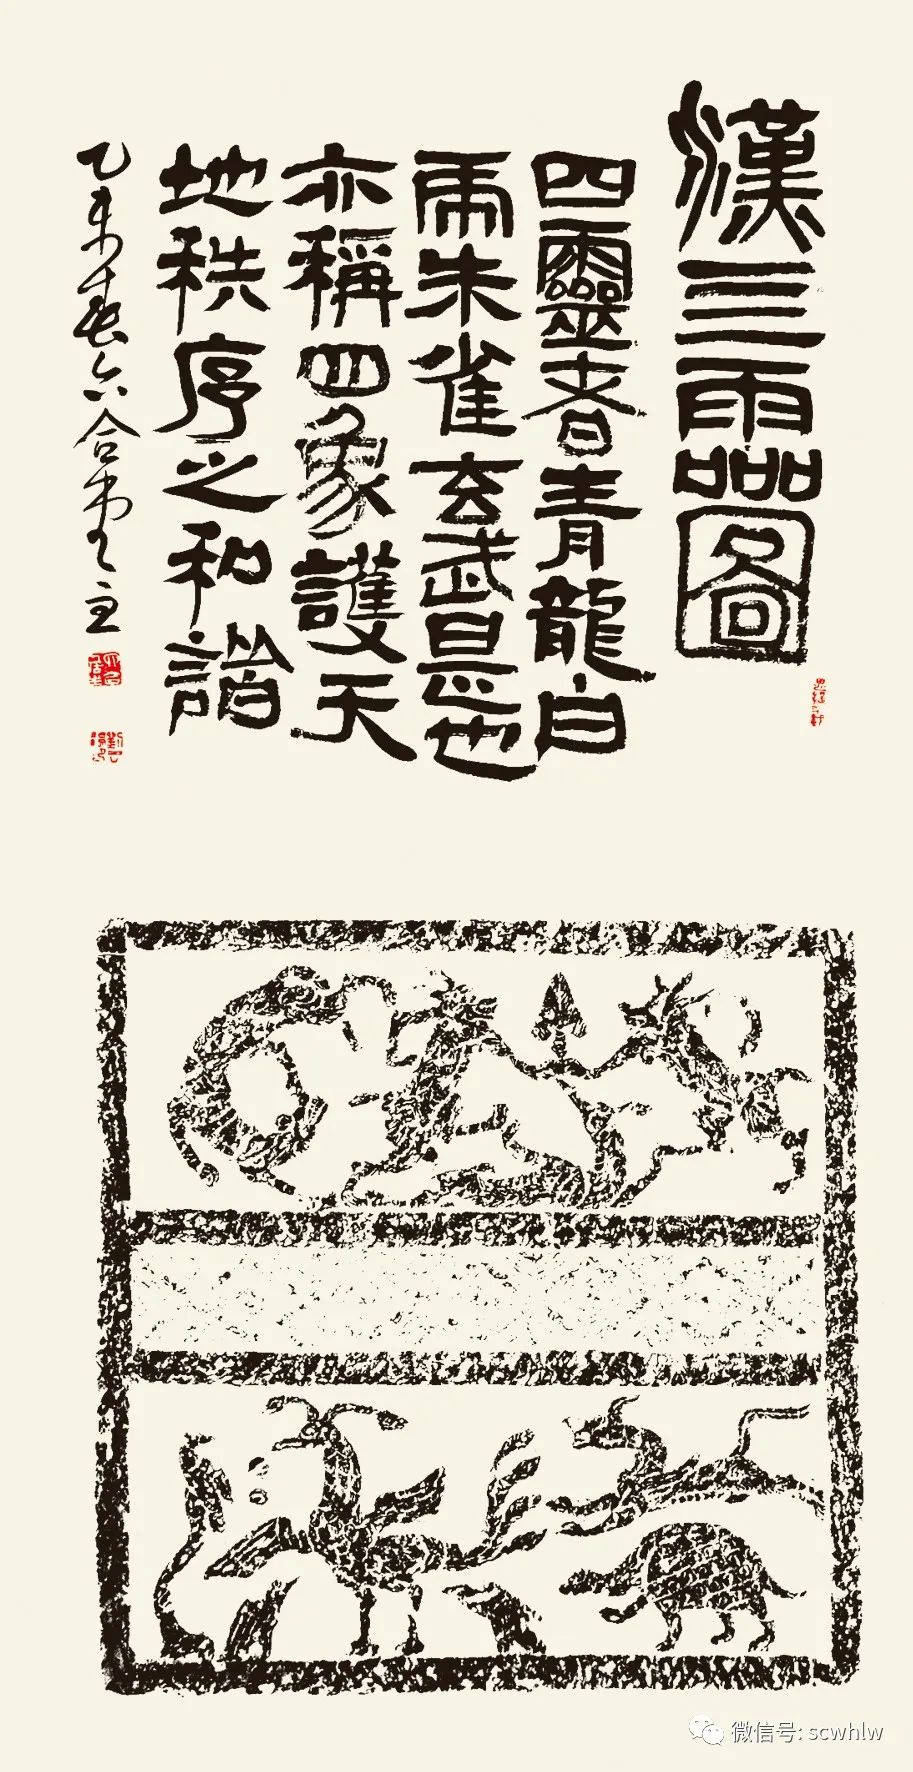 漢亖霝圖
四靈者青龍白
虎朱雀玄武是也
亦稱四象護天
地秩序之和諧
乙未春六合堂主
微信号: scwhlw